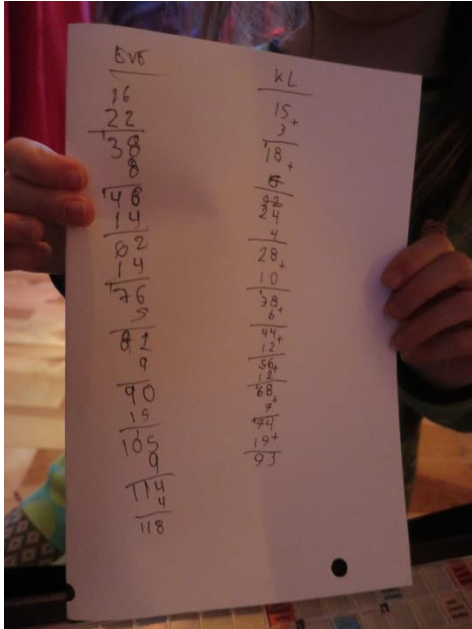 EVE
16
22
38
8
46
14
62
14
76
5
81
9
90
15
105
9
114
4
118
KL
15
3+
18+
24
4
28+
10
38
6+
44+
12
56+
12
68
7+
74
19+
93